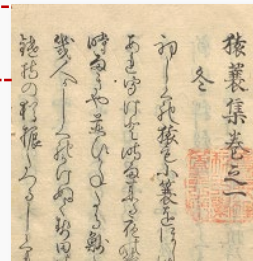 猿蓑集巻之一
冬
初しくれ猿も小蓑をほし
あれ聞けと時雨来る夜の
時雨きや並ひかねたる魦
幾人かしくれかけぬく勢田
鑓持の猶振たつるしく